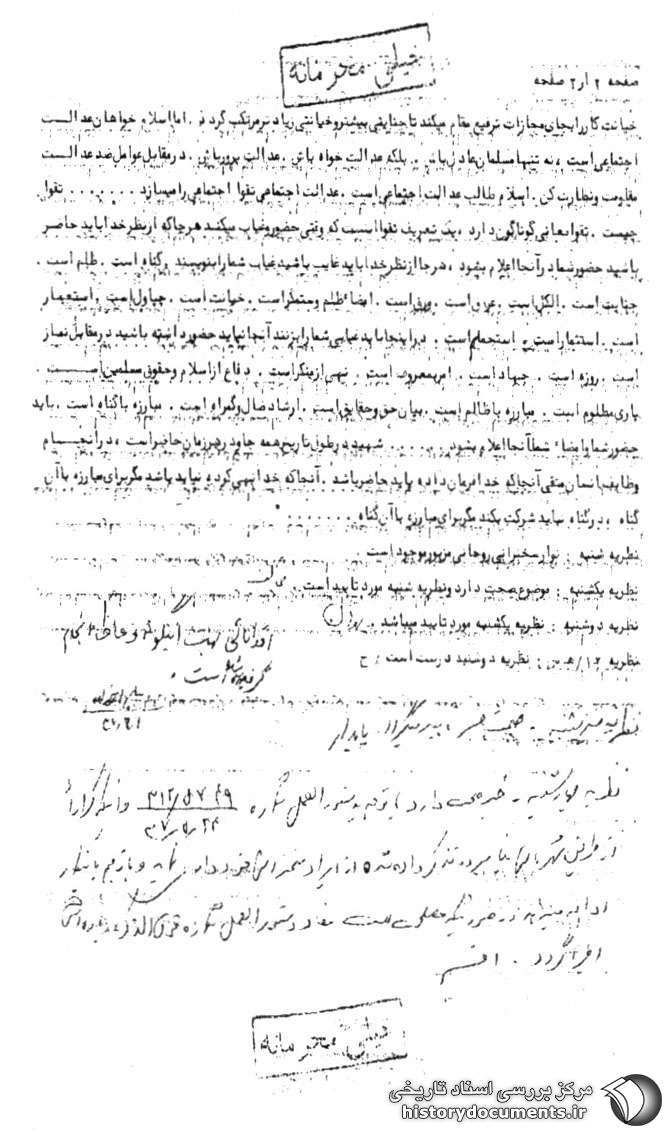 خیلی محرمانه
صفحه ۲ از ۲ صفحه
خیانت کار را بجای مجازات ترفیع مقام میکند تا جنایتی بیشتر و خیانتی زیادتر مرتکب گردد . اما اسلام خواهان عدالت
اجتماعی است ، نه تنها مسلمان عادل باش . بلکه عدالت خواه باش . عدالت پرور باش . در مقابل عوامل ضد عدالت
مقاومت و نظارت کن . اسلام طالب عدالت اجتماعی است . عدالت اجتماعی تقوا اجتماعی را میسازد . . . . . . . تقوا
چیست . تقوا معانی گوناگون دارد ، یک تعریف تقوا اینست که وقتی حضور و غیاب میکنند هر جا که از نظر خدا باید حاضر
باشید حضور شما در آنجا اعلام بشود ، هر جا از نظر خدا باید غایب باشید غیاب شما را بنویسند . گناه است . ظلم است .
جنایت است . الکل است . عرق است . ورق است . امضا ظلم و ستمگر است . خیانت است . چپاول است . استعمار
است . استثمار است . استحمار است . در اینجا باید غیابی شما را بزنند آنجا نباید حضور داشته باشید در مقابل نماز
است . روزه است . جهاد است . امر بمعروف است . نهی از منکر است . دفاع از اسلام و حقوق مسلمین است .
یاری مظلوم است . مبارزه با ظالم است . بیان حق و حقایق است . ارشاد ضال و گمراه است . مبارزه با گناه است . باید
حضور شما و امضاء شما آنجا اعلام بشود . . . . . . شهید در طول تاریخ همه جا و در هر زمان حاضر است ، در انجام
وظایف انسان متقی آنجا که خدا فرمان داده باید حاضر باشد . آنجا که خدا نهی کرده نباید باشد مگر برای مبارزه با آن
گناه . در گناه نباید شرکت بکند مگر برای مبارزه با آن گناه . . . . . . . .
نظریه شنبه : نوار سخنرانی روحانی مزبور موجود است .
نظریه یکشنبه : موضوع صحت دارد و نظریه شنبه مورد تایید است .
نظریه دوشنبه : نظریه یکشنبه مورد تایید میباشد .
نظریه ۱۲/ هـ س : نظریه دوشنبه درست است . ح
گرفته شده است .
نظریه سه شنبه .
نظریه چهارشنبه - خبر صحت دارد با توجه بدستورالعمل شماره
از طریق
ادامه میدهد
اجرا گردد .
خیلی محرمانه
مرکز بررسی اسناد تاریخی
historydocuments.ir